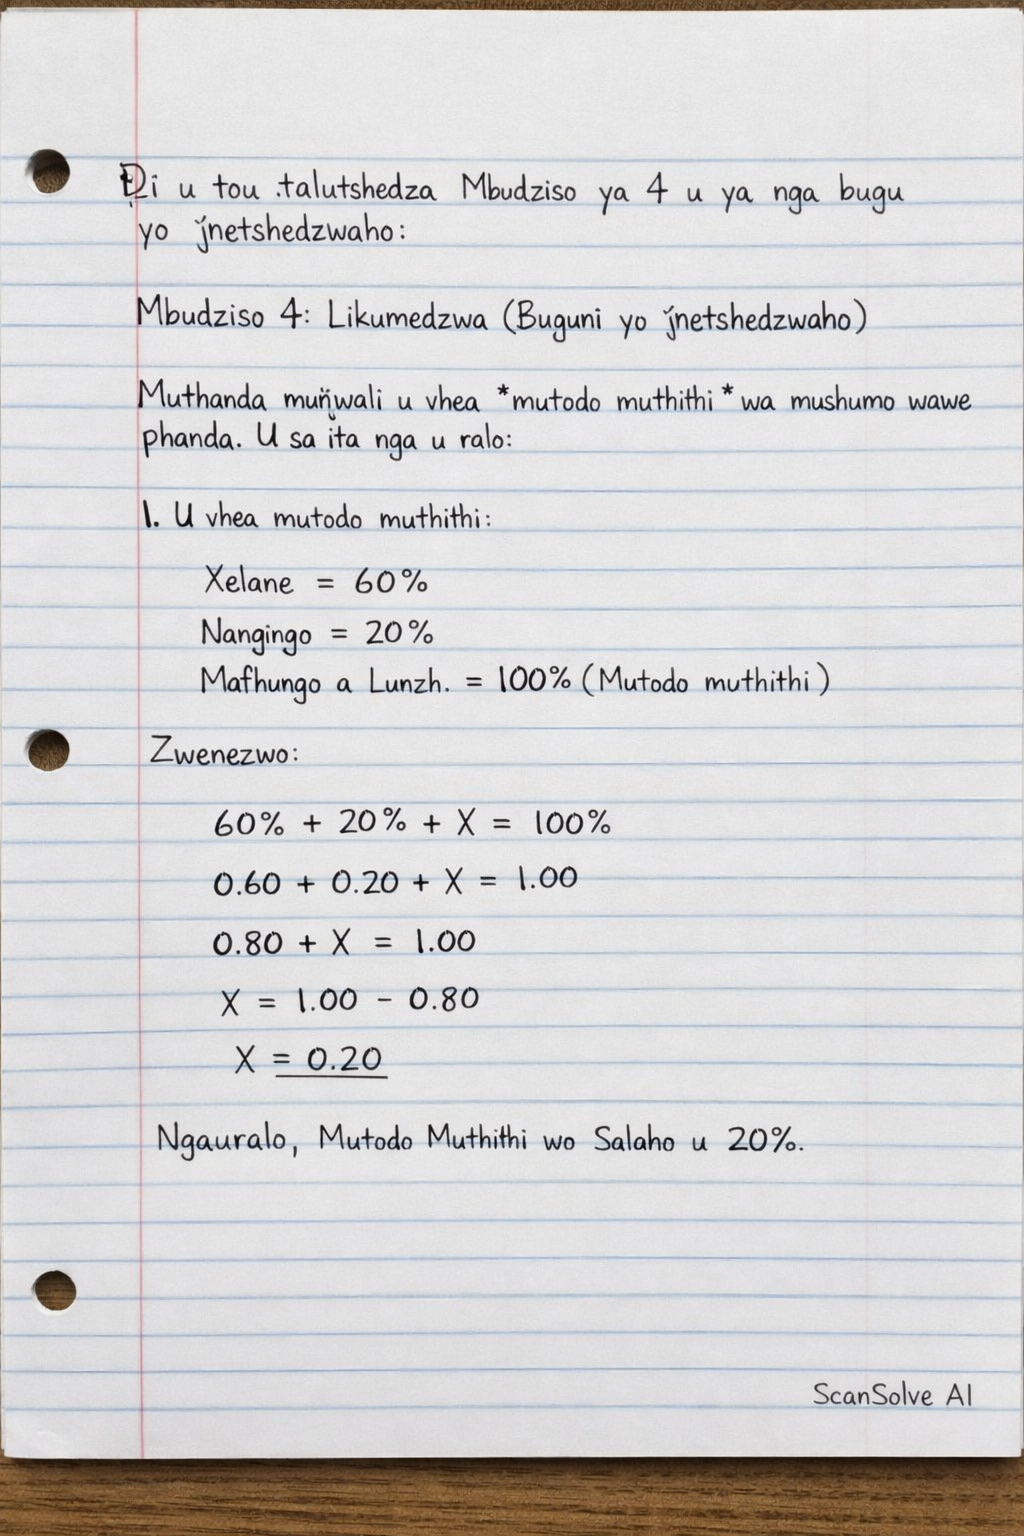 Ḓi u tou ṱalutshedza Mbudziso ya 4 u ya nga bugu
yo ǰnetshedzwaho:
Mbudziso 4: Likumedzwa (Buguni yo ǰnetshedzwaho)
Muthanda muṅwali u vhea *mutodo muthithi* wa mushumo wawe
phanda. U sa ita nga u ralo:
1. U vhea mutodo muthithi:
Xelane = 60%
Nangingo = 20%
Mafhungo a Lunzh. = 100% (Mutodo muthithi)
Zwenezwo:
60% + 20% + X = 100%
0.60 + 0.20 + X = 1.00
0.80 + X = 1.00
X = 1.00 - 0.80
X = 0.20
Ngauralo, Mutodo Muthithi wo Salaho u 20%.
ScanSolve AI